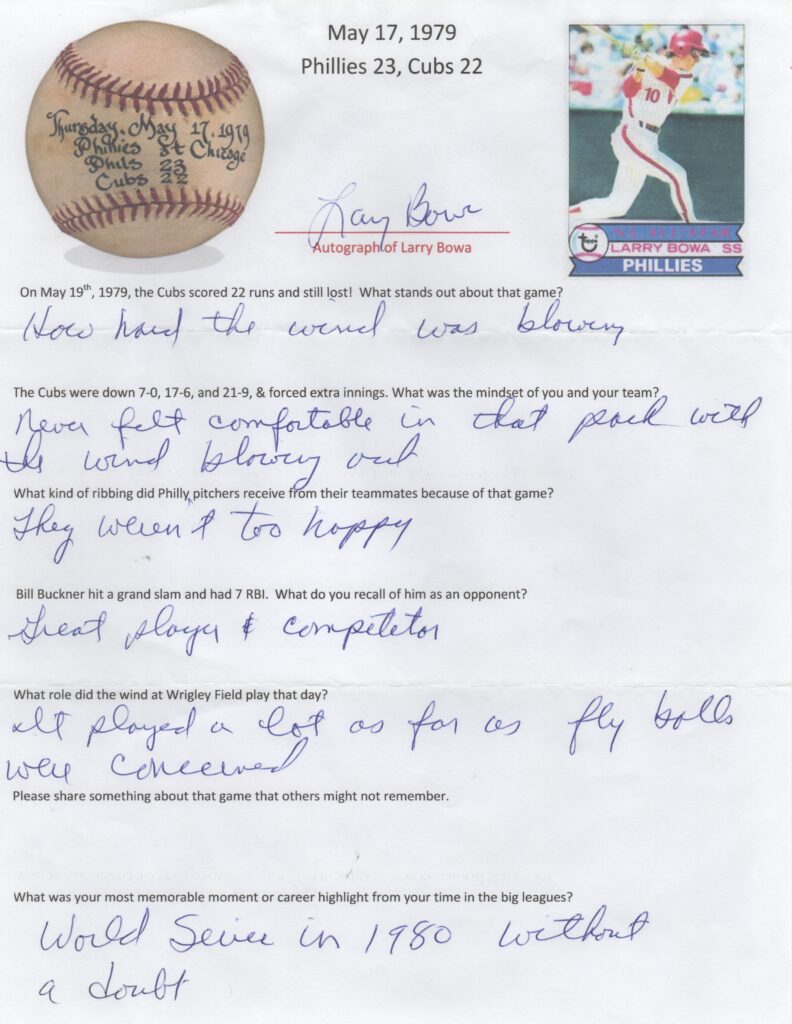 May 17, 1979
Phillies 23, Cubs 22
Thursday, May 17, 1979
Phillies at Chicago
Phils 23
Cubs 22
10
Larry Bowa
Autograph of Larry Bowa
N.L. ALL-STAR
Topps
LARRY BOWA SS
PHILLIES
On May 19th, 1979, the Cubs scored 22 runs and still lost! What stands out about that game?
How hard the wind was blowing
The Cubs were down 7-0, 17-6, and 21-9, & forced extra innings. What was the mindset of you and your team?
Never felt comfortable in that park with
the wind blowing out
What kind of ribbing did Philly pitchers receive from their teammates because of that game?
They weren't too happy
Bill Buckner hit a grand slam and had 7 RBI. What do you recall of him as an opponent?
Great player & competetor
What role did the wind at Wrigley Field play that day?
It played a lot as far as fly balls
were concerned
Please share something about that game that others might not remember.
What was your most memorable moment or career highlight from your time in the big leagues?
World Series in 1980 without
a doubt